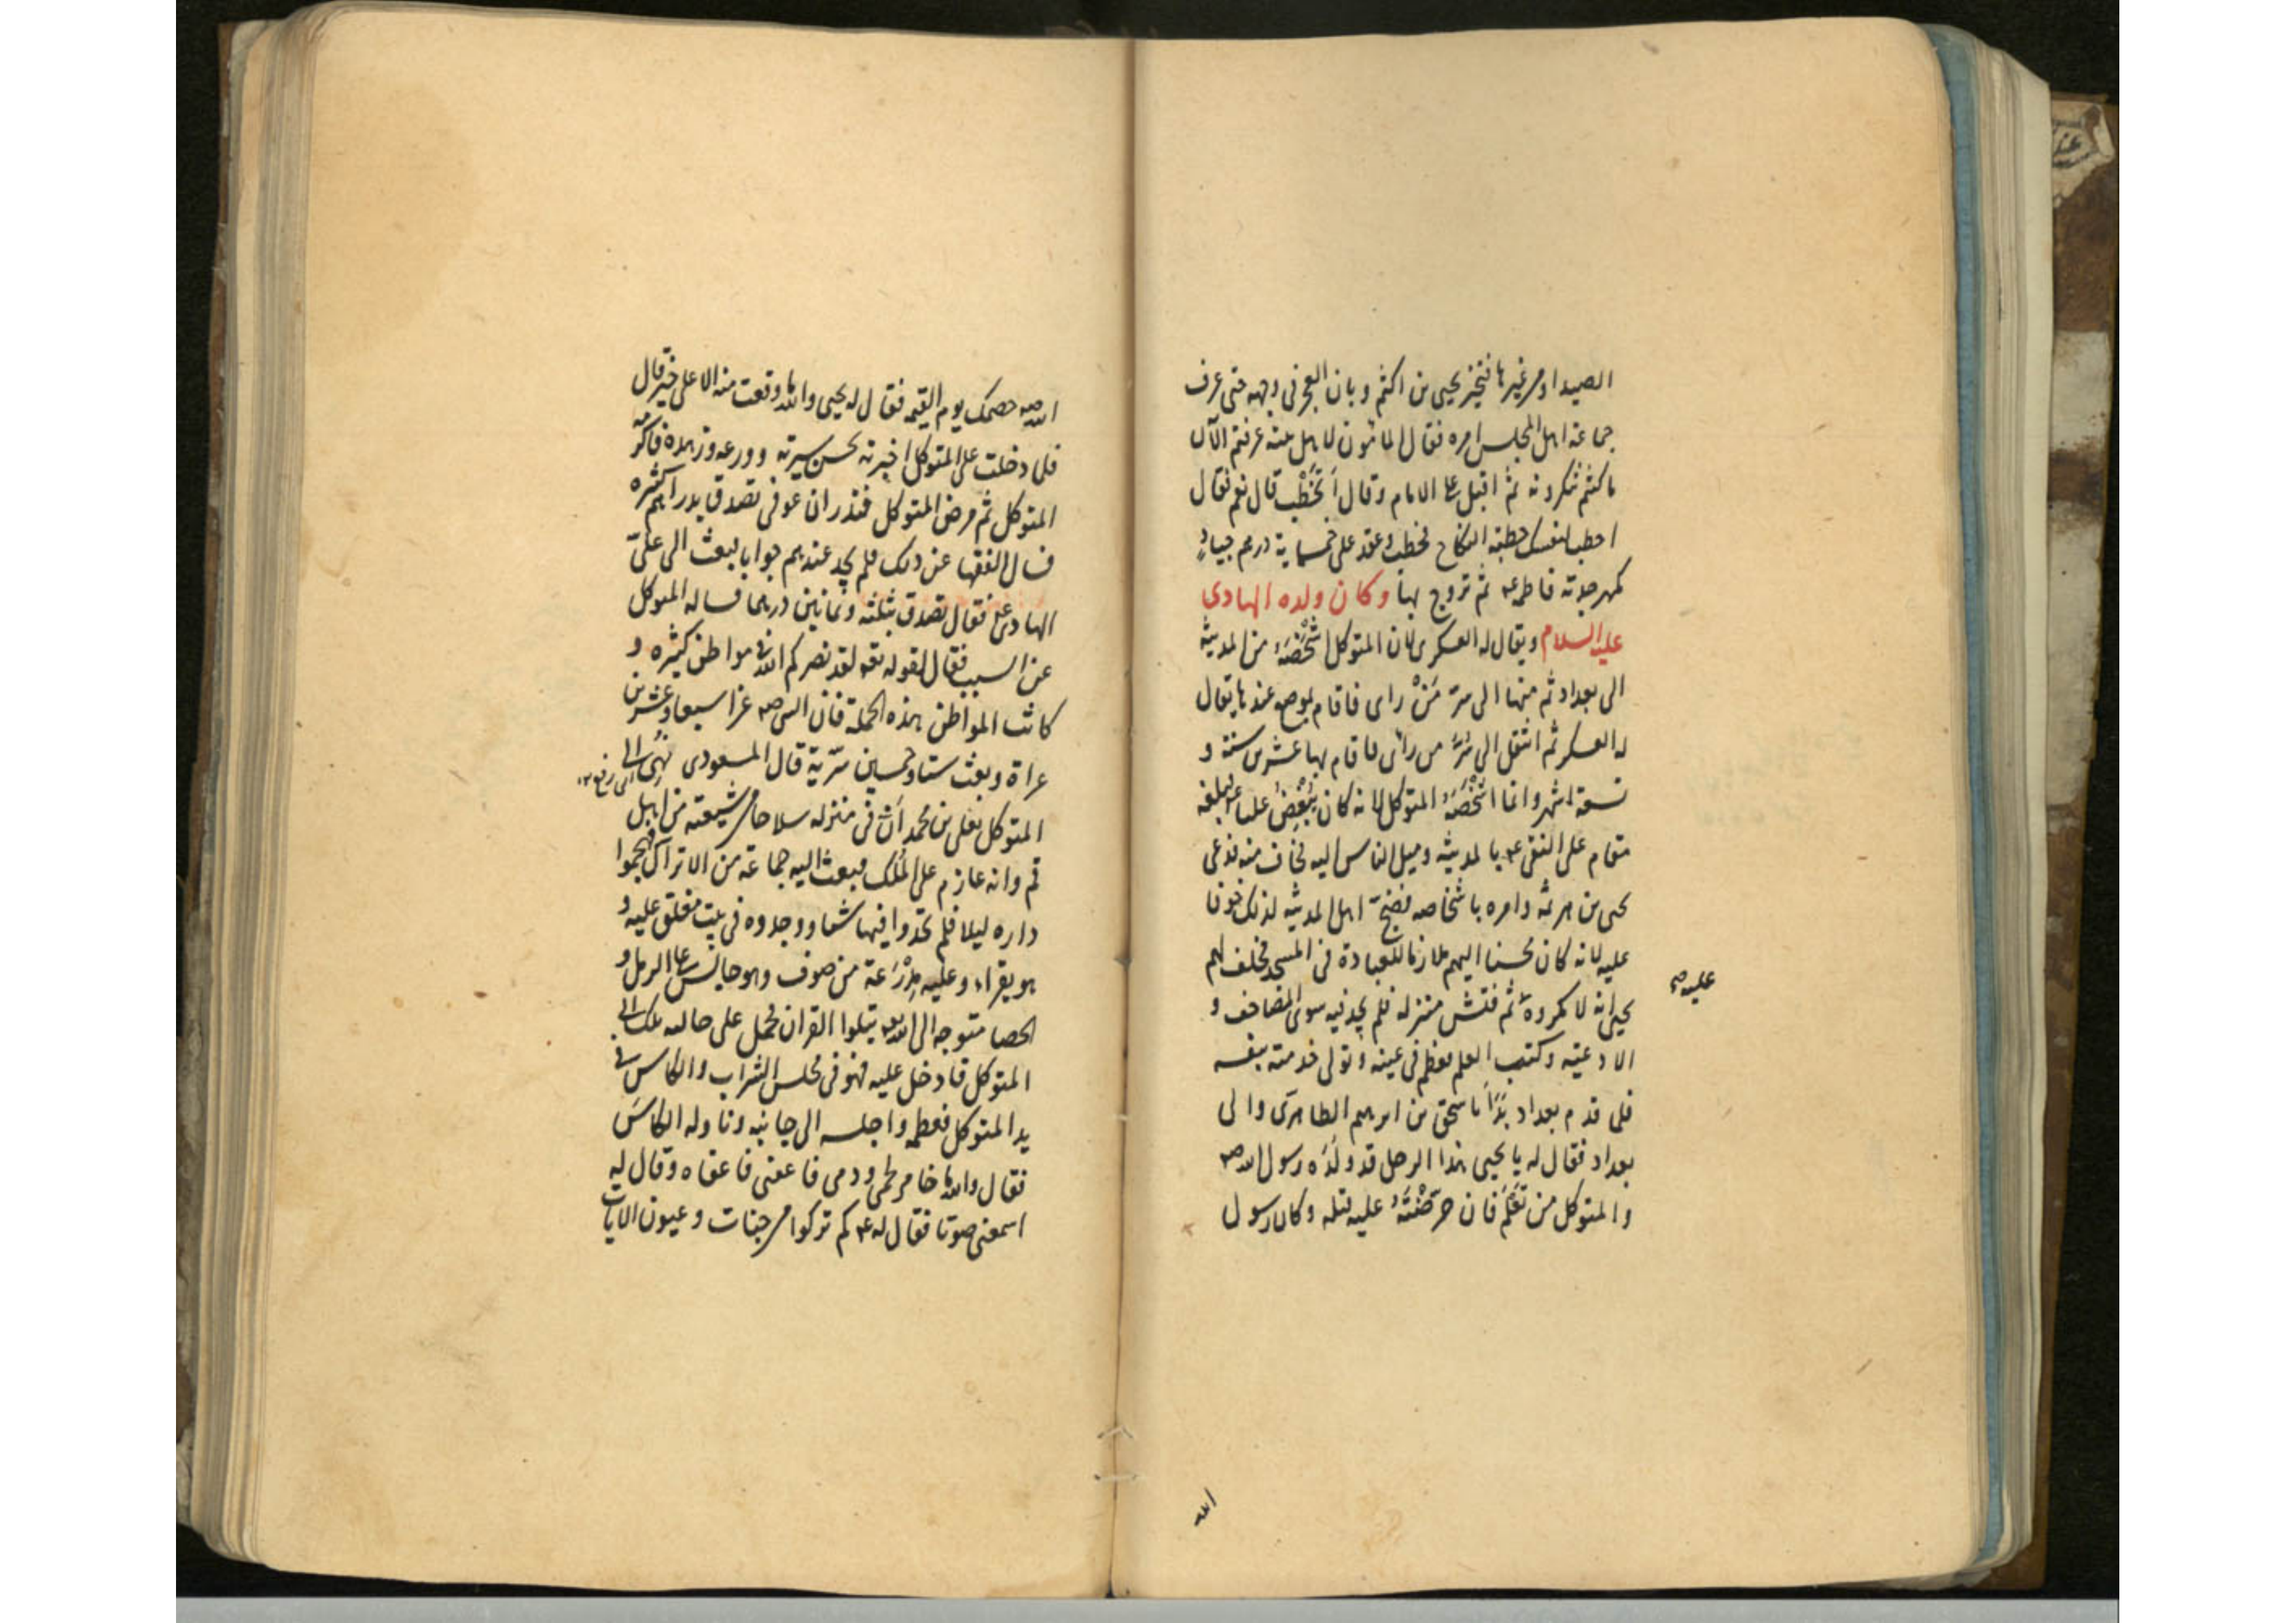 الصيد او من غيرها فتحير يحيى بن اكثم و بان العجز فى وجهه حتى عرف
جماعة اهل المجلس امره فقال المامون لاهل بيته عرفتم الآن
ما كنتم تنكرونه ثم اقبل على الامام وقال أتخطب قال نعم فقال
اخطب لنفسك خطبة النكاح فخطب و عقد على خمسماية درهم جيادٍ
كمهر جدته فاطمة ع ثم تزوج بها وكان ولده الهادى
عليه السلام ويقال له العسكرى لان المتوكل اشخصه من المدينة
الى بغداد ثم منها الى سر من راى فاقام بموضع عندها يقال
له العسكر ثم انتقل الى سر من رأى فاقام بها عشرين سنة و
تسعة اشهر وانما اشخصه المتوكل لانه كان يبغض عليا ع فبلغه
مقام على النقى ع بالمدينة وميل الناس اليه فخاف منه فدعى
يحيى بن هرثمة وامره باشخاصه فضج اهل المدينة لذلك خوفا
عليه لانه كان محسنا اليهم ملازما للعبادة فى المسجد فحلف لهم
عليه صح
يحيى انه لا مكروه ثم فتش منزله فلم يجد فيه سوى المصاحف و
الادعية وكتب العلم فعظم فى عينه وتولى خدمته بنفسه
فلما قدم بغداد بدأ باسحق بن ابرهيم الطاهرى والى
بغداد فقال له يا يحيى هذا الرجل قد ولده رسول الله صه
والمتوكل من تعلم فان حرضته عليه قتله وكان رسول
الله
الله صه خصمك يوم القيمة فقال له يحيى والله ما وقعت منه الا على خير قال
فلما دخلت على المتوكل اخبرته بحسن سيرته وورعه وزهده فاكرمه
المتوكل ثم مرض المتوكل فنذر ان عوفى تصدق بدراهم كثيره
فسال الفقها عن ذلك فلم يجد عندهم جوابا فبعث الى على
الهادى ع فقال تصدق بثلثة وثمانين درهما فساله المتوكل
عن السبب فقال لقوله تعه لقد نصركم الله فى مواطن كثيره و
كانت المواطن هذه الجملة فان النبى صه غزا سبعا وعشرين
غزاة وبعث ستا وخمسين سرية قال المسعودى نهى الى
المتوكل بعلى بن محمد ان فى منزله سلاحا من شيعته من اهل
قم وانه عازم على الملك فبعث اليه جماعة من الاتراك فهجموا
داره ليلا فلم يجدوا فيها شيئا ووجدوه فى بيت مغلق عليه و
هو يقراء وعليه مدرعة من صوف وهو جالس على الرمل و
الحصا متوجه الى الله تعه يتلوا القران فحمل على حالته تلك الى
المتوكل فادخل عليه فهو فى مجلس الشراب والكاس فى
يد المتوكل فعظمه واجلسه الى جانبه وناوله الكاس
فقال والله ما خامر لحمى ودمى فاعفنى فاعفاه وقال له
اسمعنى صوتا فقال له ع كم تركوا من جنات وعيون الايات